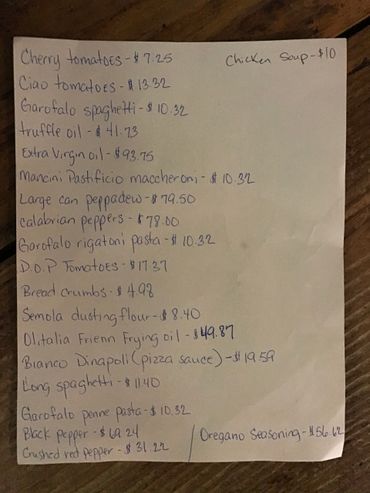 Cherry tomatoes - $7.25
Chicken Soup - $10
Ciao tomatoes - $13.32
Garofalo spaghetti - $10.32
truffle oil - $41.73
Extra Virgin oil - $93.75
Mancini Pastificio maccheroni - $10.32
Large can peppadew - $79.50
calabrian peppers - $78.00
Garofalo rigatoni pasta - $10.32
D.O.P Tomatoes - $17.37
Bread crumbs - $4.98
Semola dusting flour - $8.40
Olitalia Frienn Frying oil - $49.87
Bianco Dinapoli (pizza sauce) - $19.59
Long spaghetti - $11.40
Garofalo penne pasta - $10.32
Black pepper - $69.24
Oregano Seasoning - $56.62
Crushed red pepper - $31.22